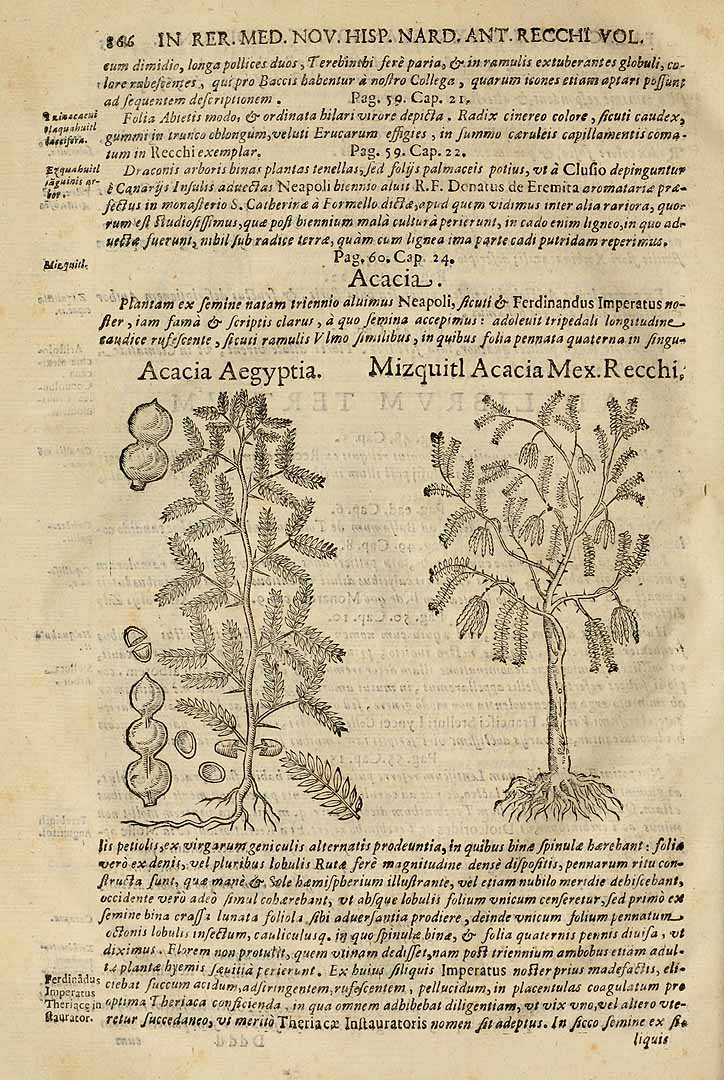 866 IN RER. MED. NOV. HISP. NARD. ANT. RECCHI VOL.
cum dimidio, longa pollices duos, Terebinthi ferè paria, & in ramulis extuberantes globuli, co-
lore rubescẽtes, qui pro Baccis habentur à nostro Collega, quarum icones etiam aptari possunt
ad sequentem descriptionem. Pag. 59. Cap. 21.
Folia Abietis modo, & ordinata hilari virore depicta. Radix cinereo colore, sicuti caudex,
gummi in trunco oblongum, veluti Erucarum effigies, in summo cæruleis capillamentis coma-
tum in Recchi exemplar. Pag. 59. Cap. 22.
Ezquahuitl
sãguinis ar-
bor.
Draconis arboris binas plantas tenellas, sed folijs palmaceis potius, vt à Clusio depinguntur
è Canarijs Insulis aduectas Neapoli biennio aluit R.F. Donatus de Eremita aromatariæ præ-
fectus in monasterio S. Catherinæ à Formello dictæ, apud quem vidimus inter alia rariora, quo-
rum est studiosissimus, quæ post biennium malà culturà perierunt, in cado enim ligneo, in quo ad-
uectæ fuerunt, nibil sub radice terræ, quàm cum lignea ima parte cadi putridam reperimus.
Mizquitl.
Pag. 60. Cap. 24.
Acacia.
Plantam ex semine natam triennio aluimus Neapoli, sicuti & Ferdinandus Imperatus no-
ster, iam famà & scriptis clarus, à quo semina accepimus: adoleuit tripedali longitudine
caudice rufescente, sicuti ramulis Vlmo similibus, in quibus folia pennata quaterna in singu-
Acacia Aegyptia. Mizquitl Acacia Mex. Recchi.
lis petiolis, ex virgarum geniculis alternatis prodeuntia, in quibus binæ spinulæ hærebant: folia
verò ex denis, vel pluribus lobulis Rutæ ferè magnitudine densè dispositis, pennarum ritu con-
structa sunt, quæ manè & Sole hæmispherium illustrante, vel etiam nubilo meridie debiscebant,
occidente verò adeò simul cohærebant, vt absque lobulis folium vnicum censeretur, sed primo ex
semine bina crassa lunata foliola sibi aduersantia prodiere, deinde vnicum folium pennatum
octonis lobulis insectum, cauliculusq. in quo spinulæ binæ, & folia quaternis pennis diuisa, vt
diximus. Florem non protulit, quem vtinam dedisset, nam post triennium ambobus etiam adul-
tæ plantæ hyemis sæuitià perierunt. Ex huius siliquis Imperatus noster prius madefactis, eli-
ciebat succum acidum, adstringentem, rufescentem, pellucidum, in placentulas coagulatum pro
optima Theriaca conficienda, in qua omnem adhibebat diligentiam, vt vix vno, vel altero vte-
retur succedaneo, vt meritò Theriacæ Instauratoris nomen sit adeptus. In sicco semine ex si-
Ferdinãdus
Imperatus
Theriacę in
staurator.
liquis